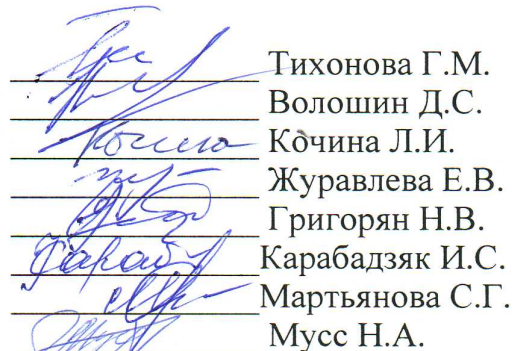 Тихонова Г.М.
Волошин Д.С.
Кочина Л.И.
Журавлева Е.В.
Григорян Н.В.
Карабадзяк И.С.
Мартьянова С.Г.
Мусс Н.А.